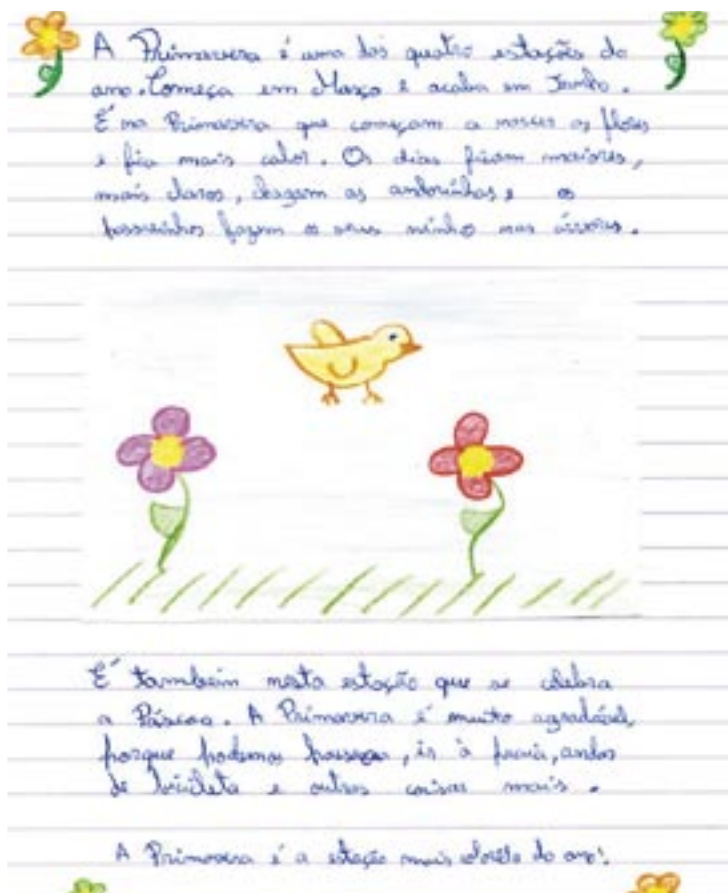 A Primavera é uma das quatro estações do
ano. Começa em Março e acaba em Junho.
É na Primavera que começam a nascer as flores
e fica mais calor. Os dias ficam maiores,
mais claros, chegam as andorinhas e os
passarinhos fazem os seus ninhos nas árvores.
É também nesta estação que se celebra
a Páscoa. A Primavera é muito agradável,
porque podemos passear, ir à praia, andar
de bicicleta e outras coisas mais.
A Primavera é a estação mais colorida do ano!